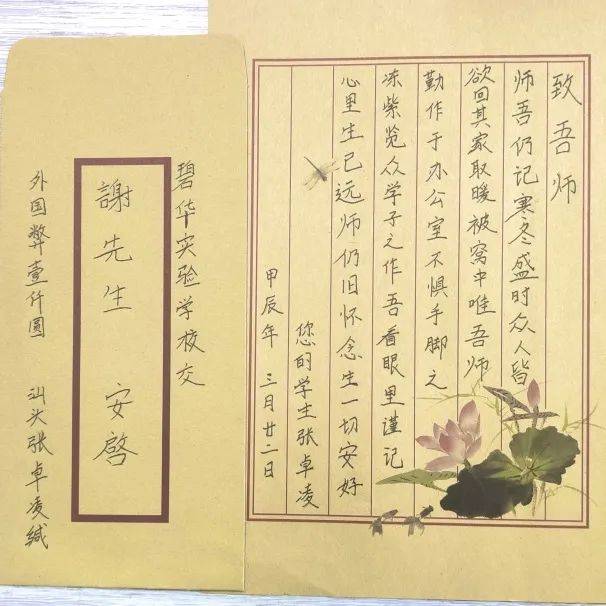 碧华实验学校交
謝先生 安啓
外国弊壹仟圆 汕头张卓凌缄
致吾师
师吾仍记寒冬盛时众人皆
欲回其家取暖被窝中唯吾师
勤作于办公室不惧手脚之
冻紫览众学子之作吾看眼里谨记
心里生已远师仍旧怀念生一切安好
您的学生张卓凌
甲辰年 三月廿二日